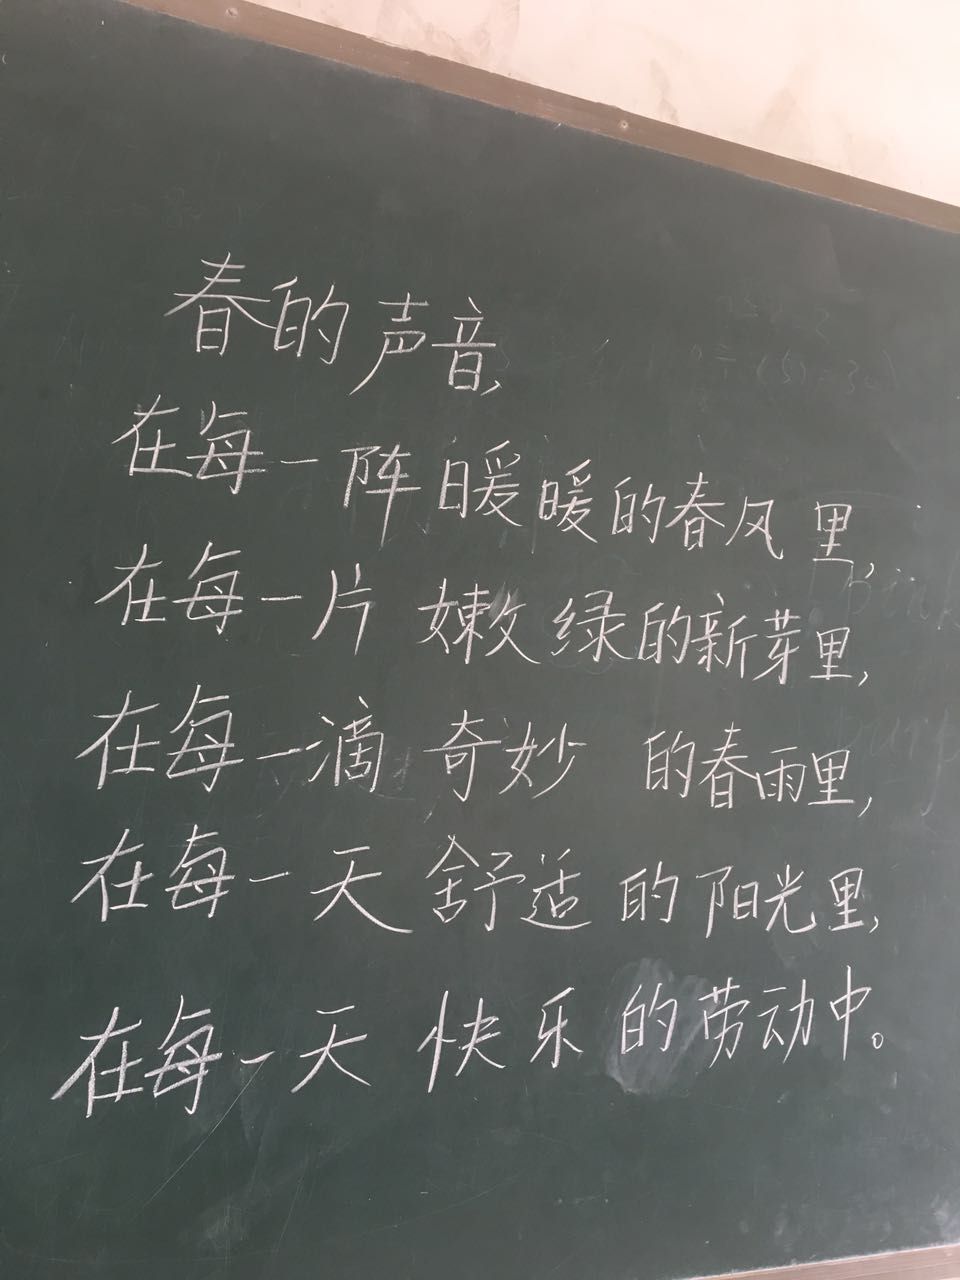 春的声音,
在每一阵暖暖的春风里,
在每一片嫩绿的新芽里,
在每一滴奇妙的春雨里,
在每一天舒适的阳光里,
在每一天快乐的劳动中。